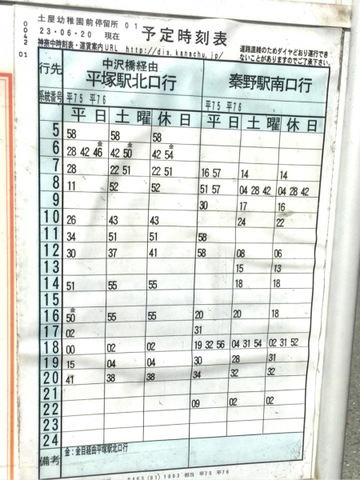 土屋幼稚園前停留所 01
23-06-20 現在 予定時刻表
神奈中時刻表・運賃案内URL http://dia.kanachu.jp/
道路混雑のためダイヤどおり運行でき
ないことがありますのでご了承下さい。
0042 01
行先 中沢橋経由 平塚駅北口行 秦野駅南口行
系統番号 平75 平76 平75 平76
平日 土曜 休日 平日 土曜 休日
5 58 58 58
6 28 42 金46 42 金50 42 金54
7 28 22 51 22 51 16 57 14 14
8 11 52 52 51 57 04 28 42 04 28 42
9 30 17 16
10 26 43 43 24 22
11 34 51 51 58
12 30 37 41 58 08 06
13 15 13
14 51 55 55 18 18
15
16 金50 55 55 20 20 18
17 02 31
18 00 02 02 19 32 56 04 31 54 02 31 52
19 15 04 04 30 28 31
20 41 38 38 34 32 32
21
22 09 02 02
23
24
備考 金:金目経由平塚駅北口行